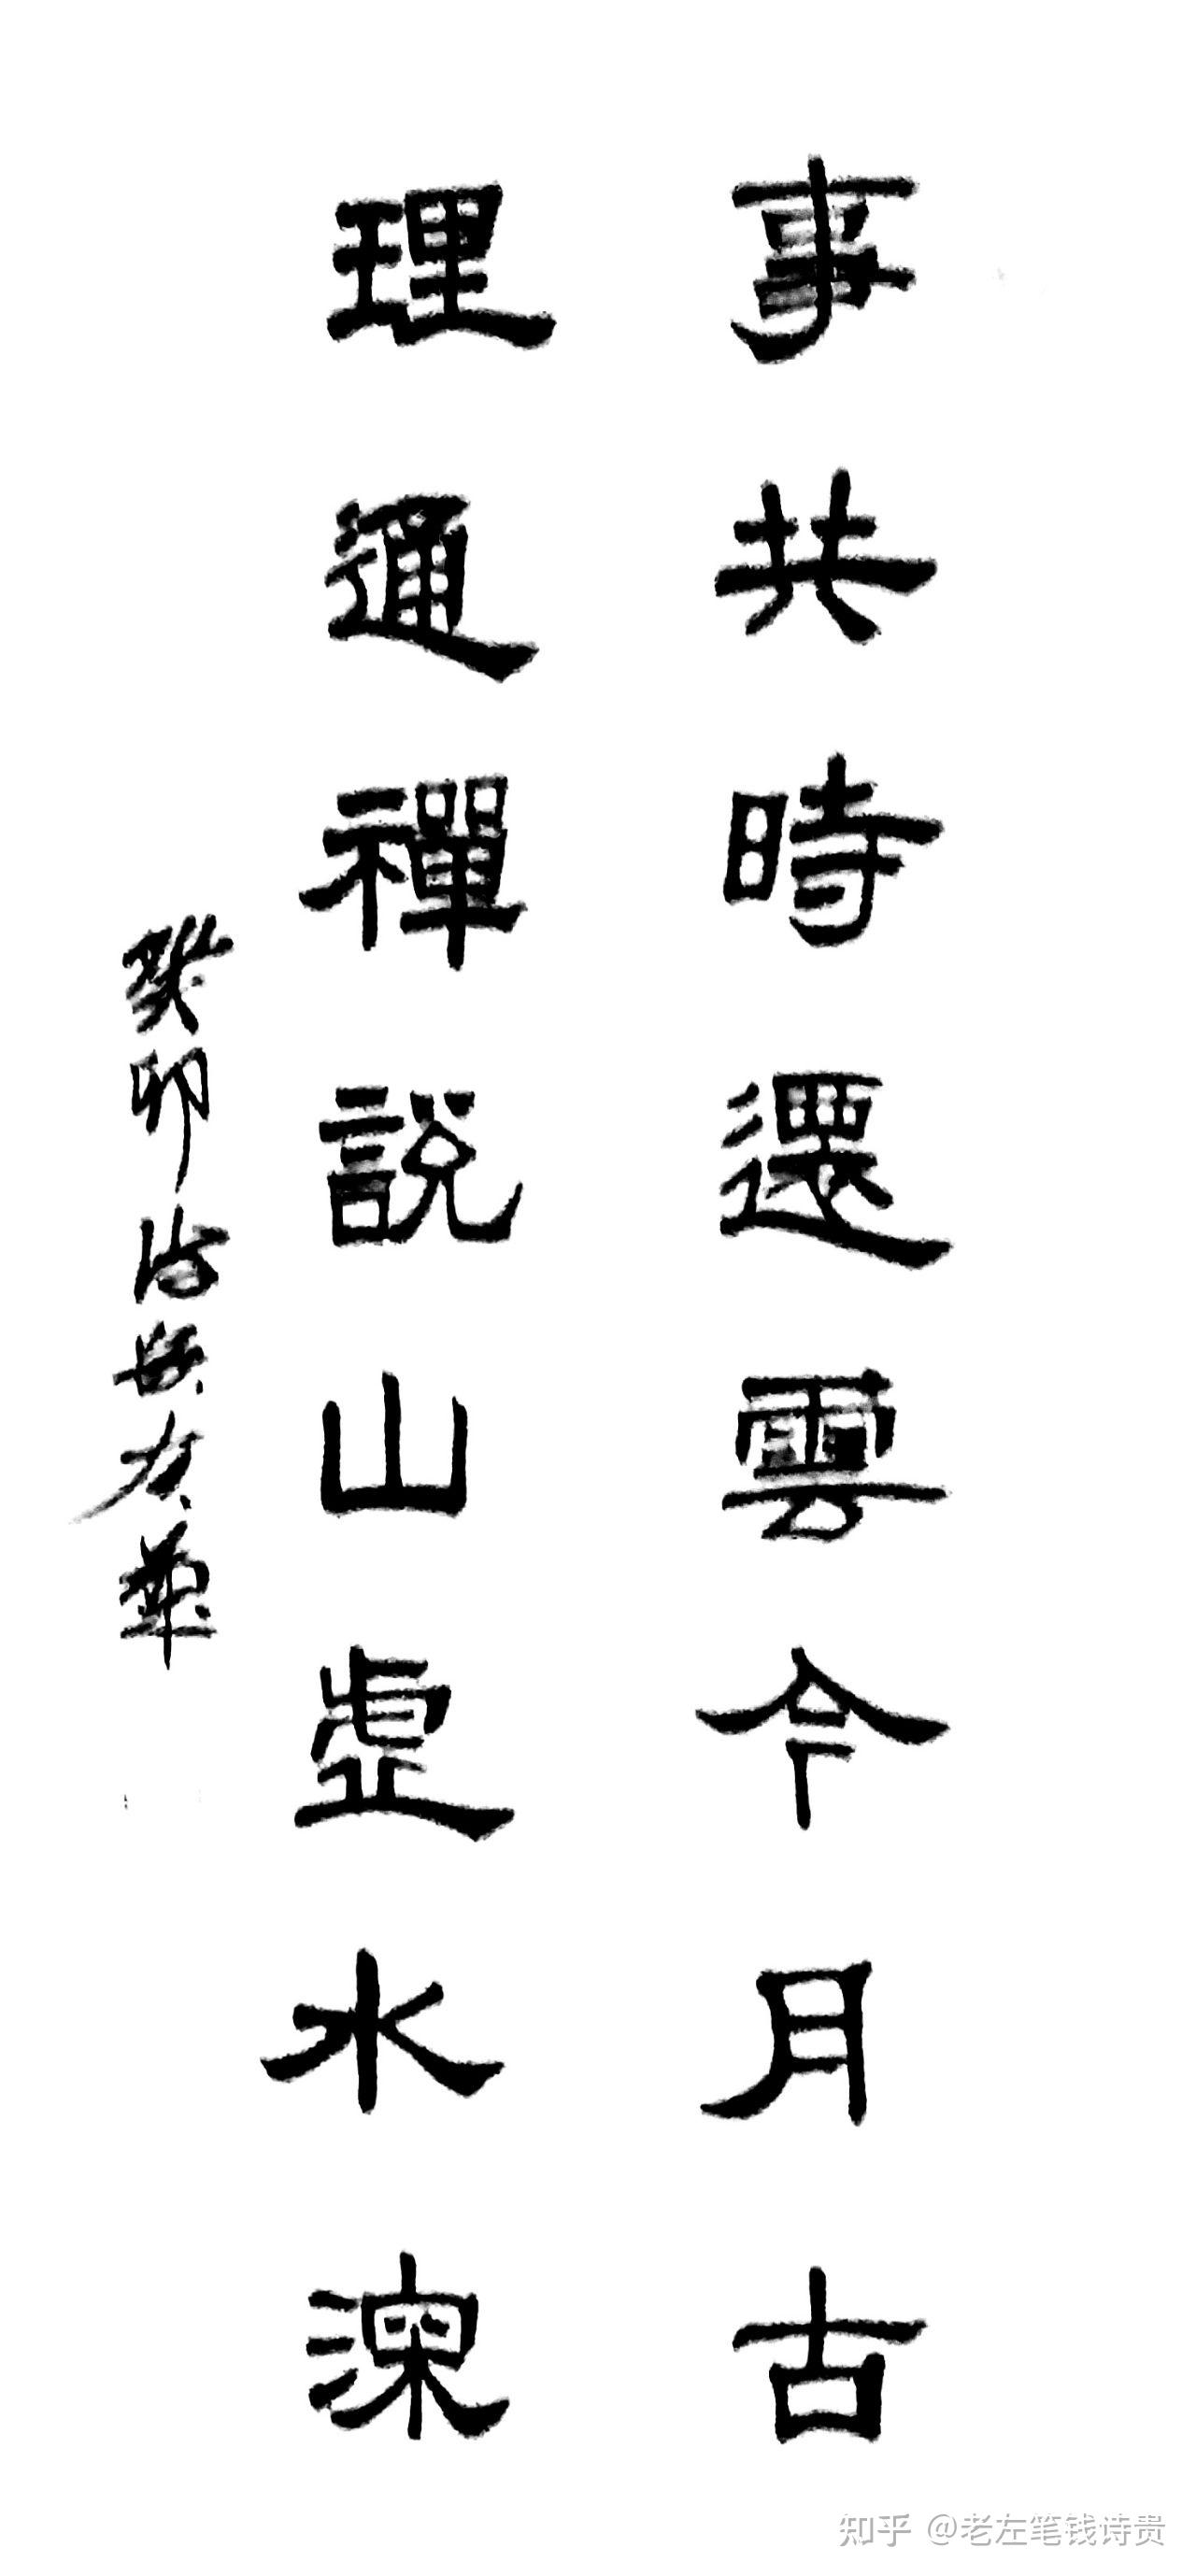 事共時還雲今月古
理通禪說山虛水深
癸卯治安
知乎 @老左笔钱诗贵